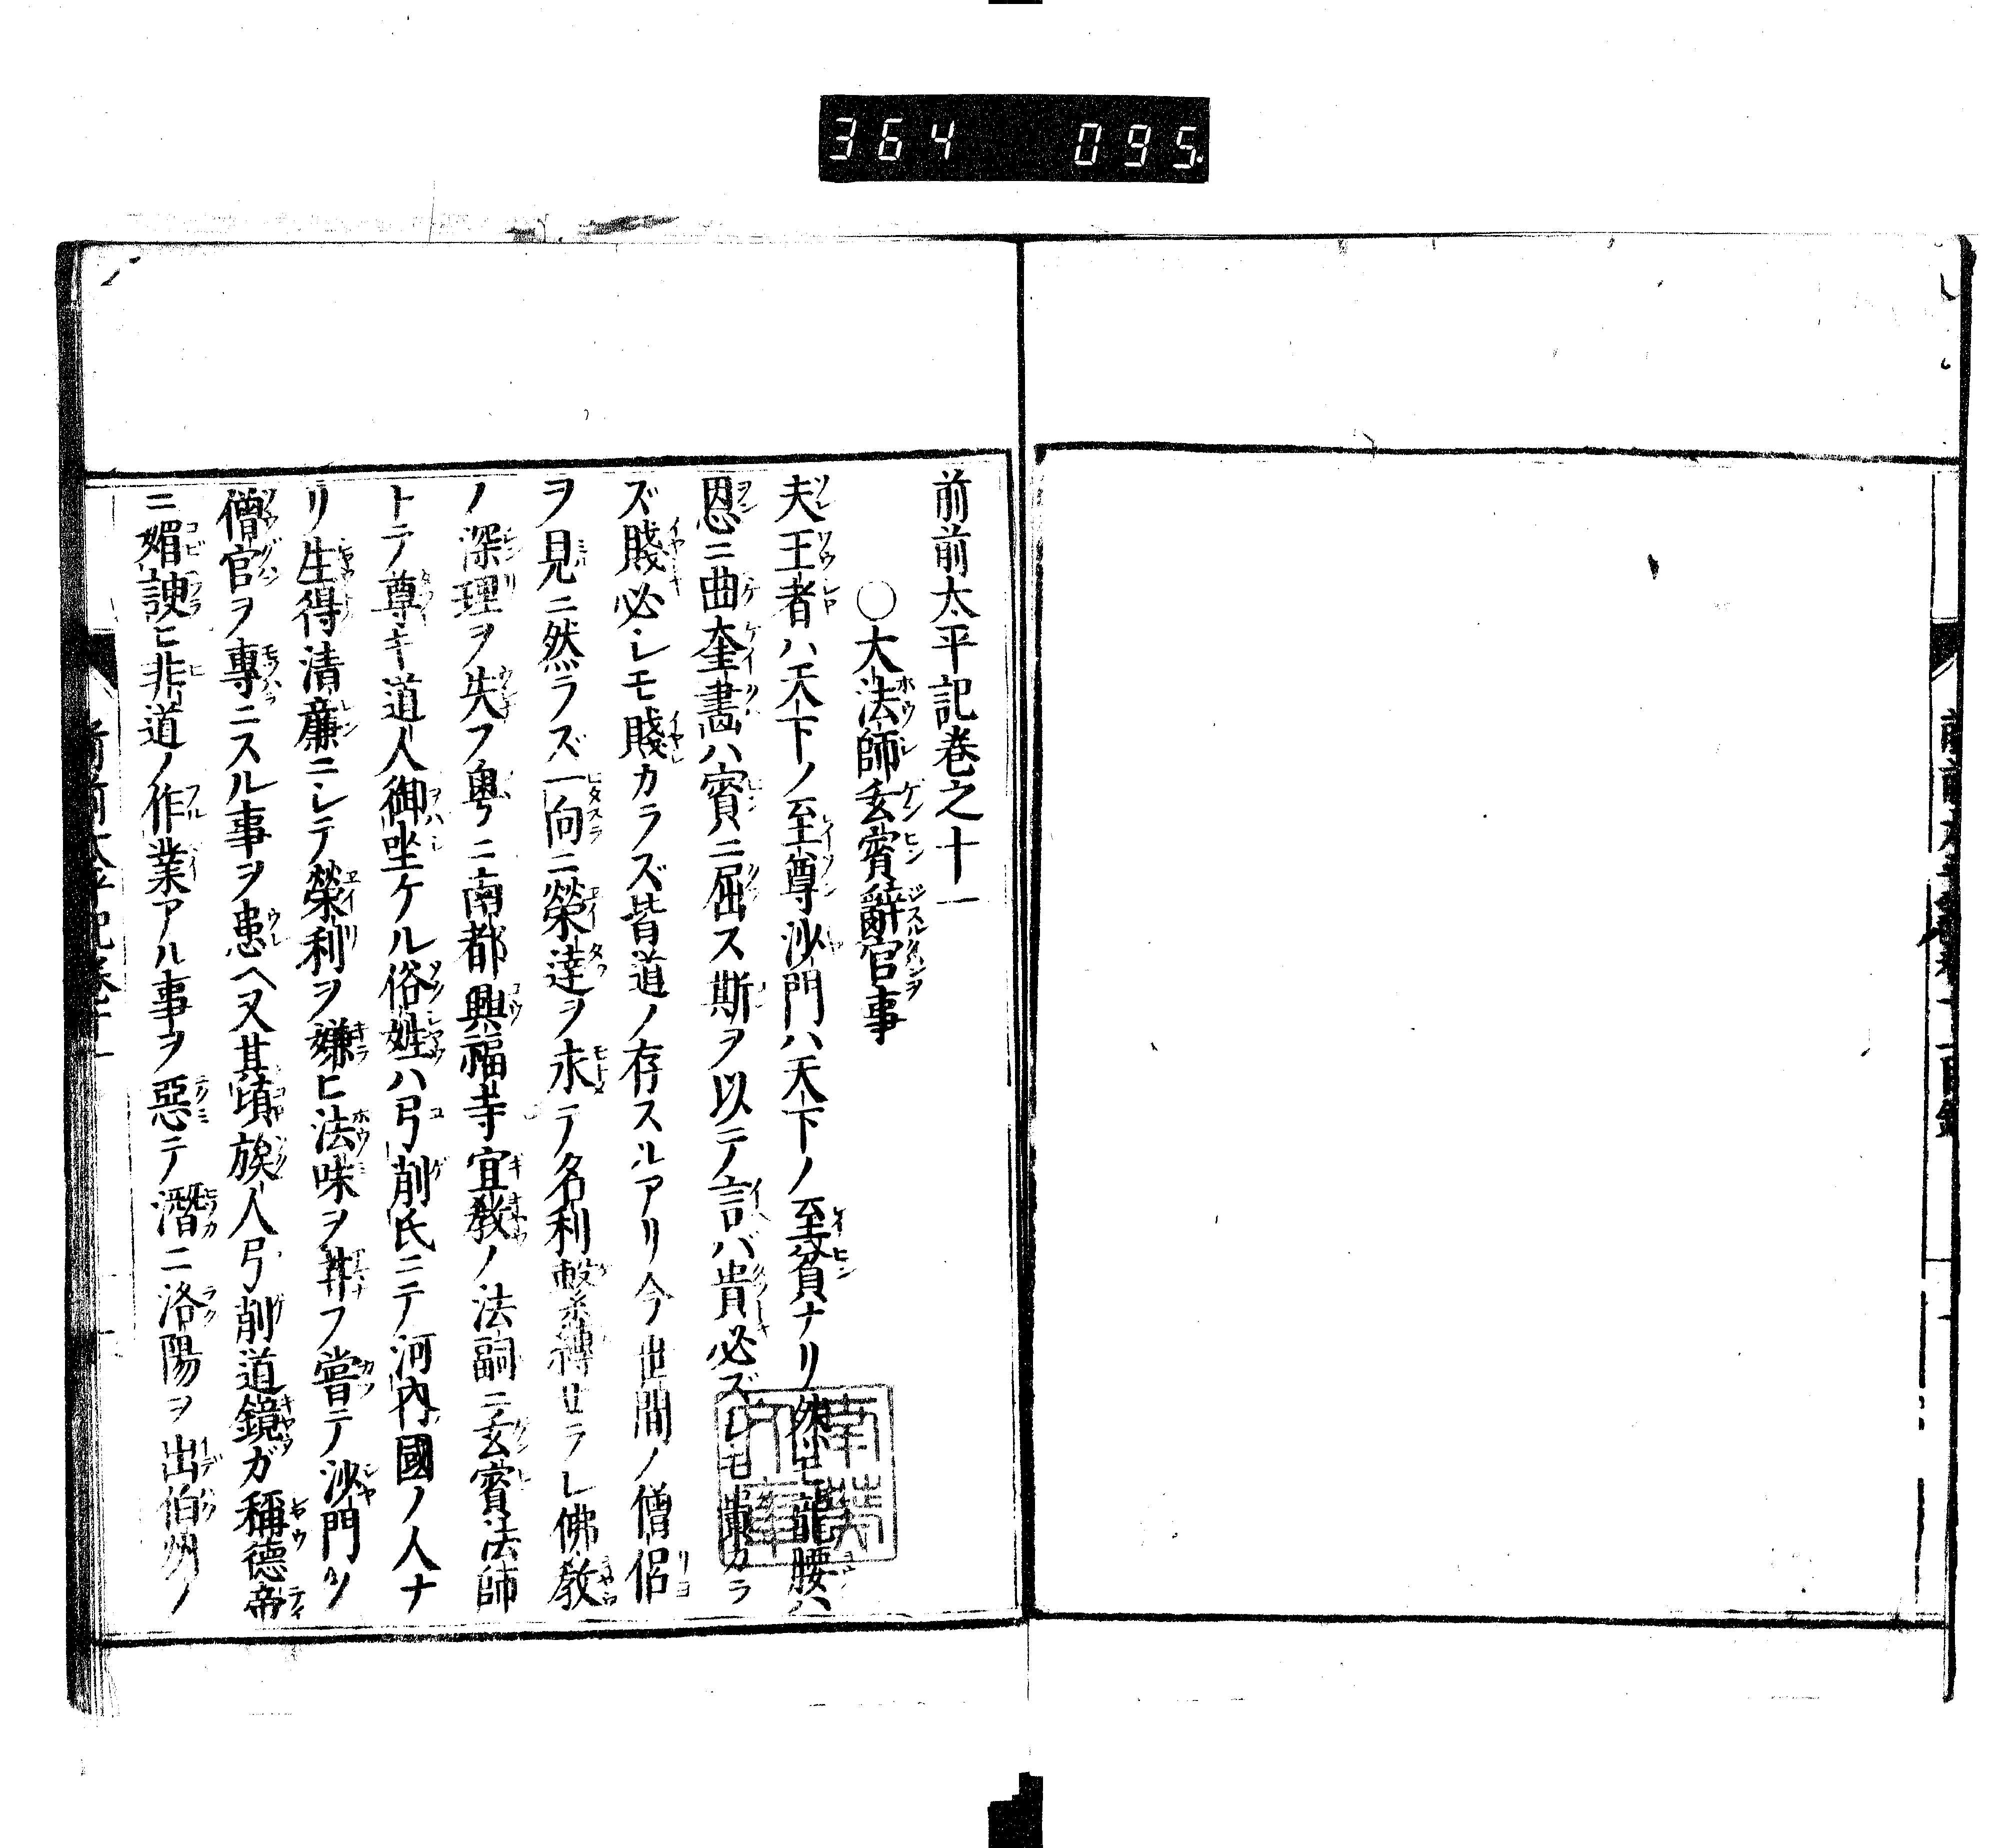 364 095.
前前太平記卷之十一
○大法師玄賓辭官事
夫王者ハ天下ノ至尊沙門ハ天下ノ至貧ナリ然モ龍腰ハ
恩ニ曲奎畵ハ賓ニ屈ス斯ヲ以テ言バ貴必ズシモ貴カラ
ズ賤必シモ賤カラズ皆道ノ存スルアリ今世間ノ僧侶
ヲ見ニ然ラズ一向ニ榮達ヲ求テ名利繫縛セラレ佛教
ノ深理ヲ失フ粤ニ南都興福寺宜教ノ法嗣ニ玄賓法師
トテ尊キ道人御坐ケル俗姓ハ弓削氏ニテ河内國ノ人ナ
リ生得清廉ニシテ榮利ヲ嫌ヒ法味ヲ甞フ嘗テ沙門ノ
僧官ヲ專ニスル事ヲ患ヘ又其頃族人弓削道鏡ガ稱德帝
ニ媚諛ヒ非道ノ作業アル事ヲ惡テ潛ニ洛陽ヲ出伯州ノ